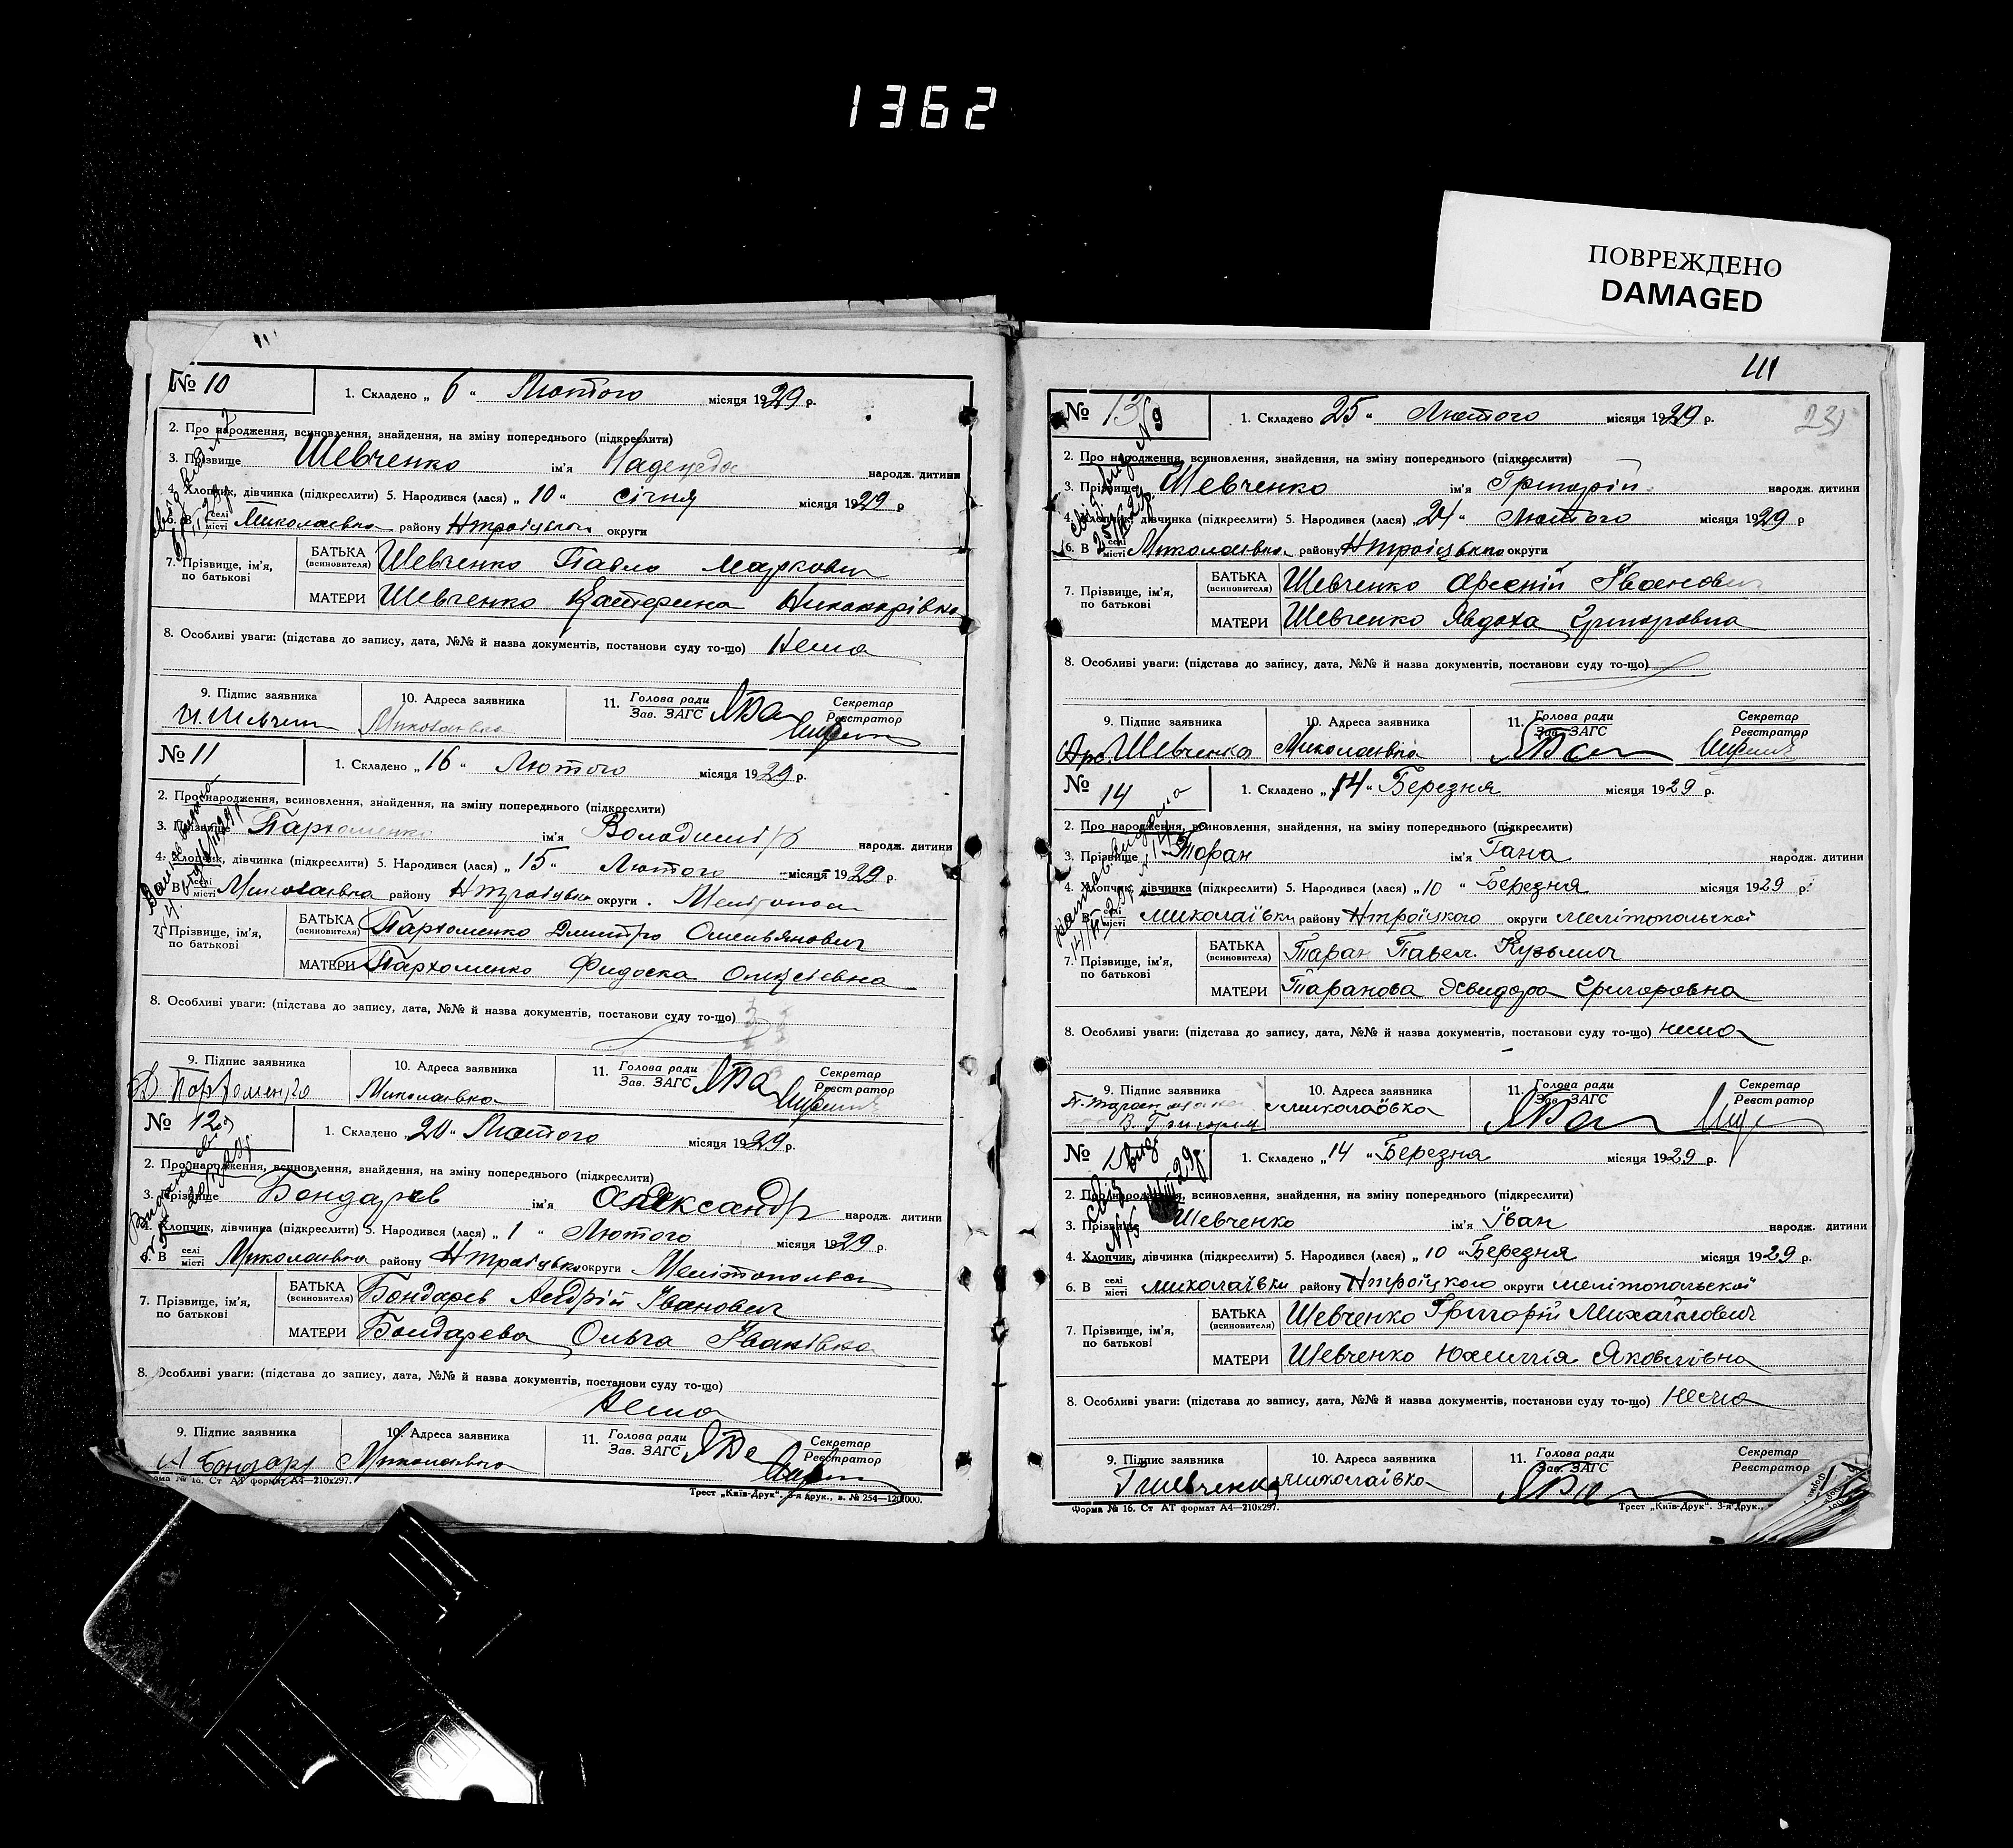 1362
ПОВРЕЖДЕНО
DAMAGED
№ 10
1. Складено „ 6 “ Лютого місяця 1929 р.
2. Про народження, всиновлення, знайдення, на зміну попереднього (підкреслити)
3. Прізвище Шевченко ім'я Надежда народж. дитини
4. Хлопчик, дівчинка (підкреслити) 5. Народився (лася) „ 10 “ січня місяця 1929 р
6. В селі місті Миколаївка району Нтроіцьком округи
7. Прізвище, ім'я, по батькові
БАТЬКА (всиновителя) Шевченко Павло Маркович
МАТЕРИ Шевченко Катерина Никонорівна
8. Особливі уваги: (підстава до запису, дата, №№ й назва документів, постанови суду то-що) Нема
9. Підпис заявника
10. Адреса заявника Миколаївка
11. Голова ради Зав. ЗАГС
Секретар Реєстратор
№ 11
1. Складено „ 16 “ Лютого місяця 1929 р.
2. Про народження, всиновлення, знайдення, на зміну попереднього (підкреслити)
3. Прізвище Пархоменко ім'я Володимір народж. дитини
4. Хлопчик, дівчинка (підкреслити) 5. Народився (лася) „ 15 “ Лютого місяця 1929 р.
В селі місті Миколаївка району округи
7. Прізвище, ім'я, по батькові
БАТЬКА (всиновителя) Пархоменко Дмитро Омельянович
МАТЕРИ Пархоменко Федоска Олексіевна
8. Особливі уваги: (підстава до запису, дата, №№ й назва документів, постанови суду то-що)
9. Підпис заявника Пархоменко
10. Адреса заявника Миколаївка
11. Голова ради Зав. ЗАГС
Секретар Реєстратор
№ 12
1. Складено „ 20 “ Лютого місяця 1929 р.
2. Про народження, всиновлення, знайдення, на зміну попереднього (підкреслити)
3. Прізвище Бондарев ім'я Олександр народж. дитини
4. Хлопчик, дівчинка (підкреслити) 5. Народився (лася) „ 1 “ Лютого місяця 1929 р.
6. В селі місті Миколаївка району округи
7. Прізвище, ім'я, по батькові
БАТЬКА (всиновителя) Бондарев Андрій Іванович
МАТЕРИ Бондарева Ольга Іванівна
8. Особливі уваги: (підстава до запису, дата, №№ й назва документів, постанови суду то-що)
Нема
9. Підпис заявника
10. Адреса заявника Миколаївка
11. Голова ради Зав. ЗАГС
Секретар Реєстратор
Форма № 16. Ст АТ формат А4—210х297.
Трест „Київ-Друк“. 3-я друк., в. № 254—120.000.
№ 13
1. Складено 25 “ Лютого місяця 1929 р.
2. Про народження, всиновлення, знайдення, на зміну попереднього (підкреслити)
3. Прізвище Шевченко ім'я Григорій народж. дитини
4. Хлопчик, дівчинка (підкреслити) 5. Народився (лася) „ 24 “ Лютого місяця 1929 р
6. В селі місті Миколаївка району округи
7. Прізвище, ім'я, по батькові
БАТЬКА (всиновителя) Шевченко Арсеній Іванович
МАТЕРИ Шевченко Явдоха Григоровна
8. Особливі уваги: (підстава до запису, дата, №№ й назва документів, постанови суду то-що)
9. Підпис заявника Арс. Шевченка
10. Адреса заявника Миколаївка
11. Голова ради Зав. ЗАГС
Секретар Реєстратор
№ 14
1. Складено „ 14 “ Березня місяця 1929 р.
2. Про народження, всиновлення, знайдення, на зміну попереднього (підкреслити)
3. Прізвище Таран ім'я Гана народж. дитини
4. Хлопчик, дівчинка (підкреслити) 5. Народився (лася) „ 10 “ Березня місяця 1929 р.
В селі місті Миколаївки району Нтроїцкого округи Мелітопольскої
7. Прізвище, ім'я, по батькові
БАТЬКА (всиновителя) Таран Павел Кузьмич
МАТЕРИ Таранова Хвидора Григоровна
8. Особливі уваги: (підстава до запису, дата, №№ й назва документів, постанови суду то-що) нема
9. Підпис заявника
10. Адреса заявника Миколаївка
11. Голова ради Зав. ЗАГС
Секретар Реєстратор
№
1. Складено „ 14 “ Березня місяця 1929 р.
2. Про народження, всиновлення, знайдення, на зміну попереднього (підкреслити)
3. Прізвище Шевченко ім'я Іван народж. дитини
4. Хлопчик, дівчинка (підкреслити) 5. Народився (лася) „ 10 “ Березня місяця 1929 р.
6. В селі місті Миколаївки району Нтроїцкого округи Мелітопольской
7. Прізвище, ім'я, по батькові
БАТЬКА (всиновителя) Шевченко Григорій Михайлович
МАТЕРИ Шевченко Юхимія Яковлівна
8. Особливі уваги: (підстава до запису, дата, №№ й назва документів, постанови суду то-що) Нема
9. Підпис заявника Г Шевченко
10. Адреса заявника Миколаївка
11. Голова ради Зав. ЗАГС
Секретар Реєстратор
Форма № 16. Ст АТ формат А4—210х297.
Трест „Київ-Друк“. 3-я Друк.,